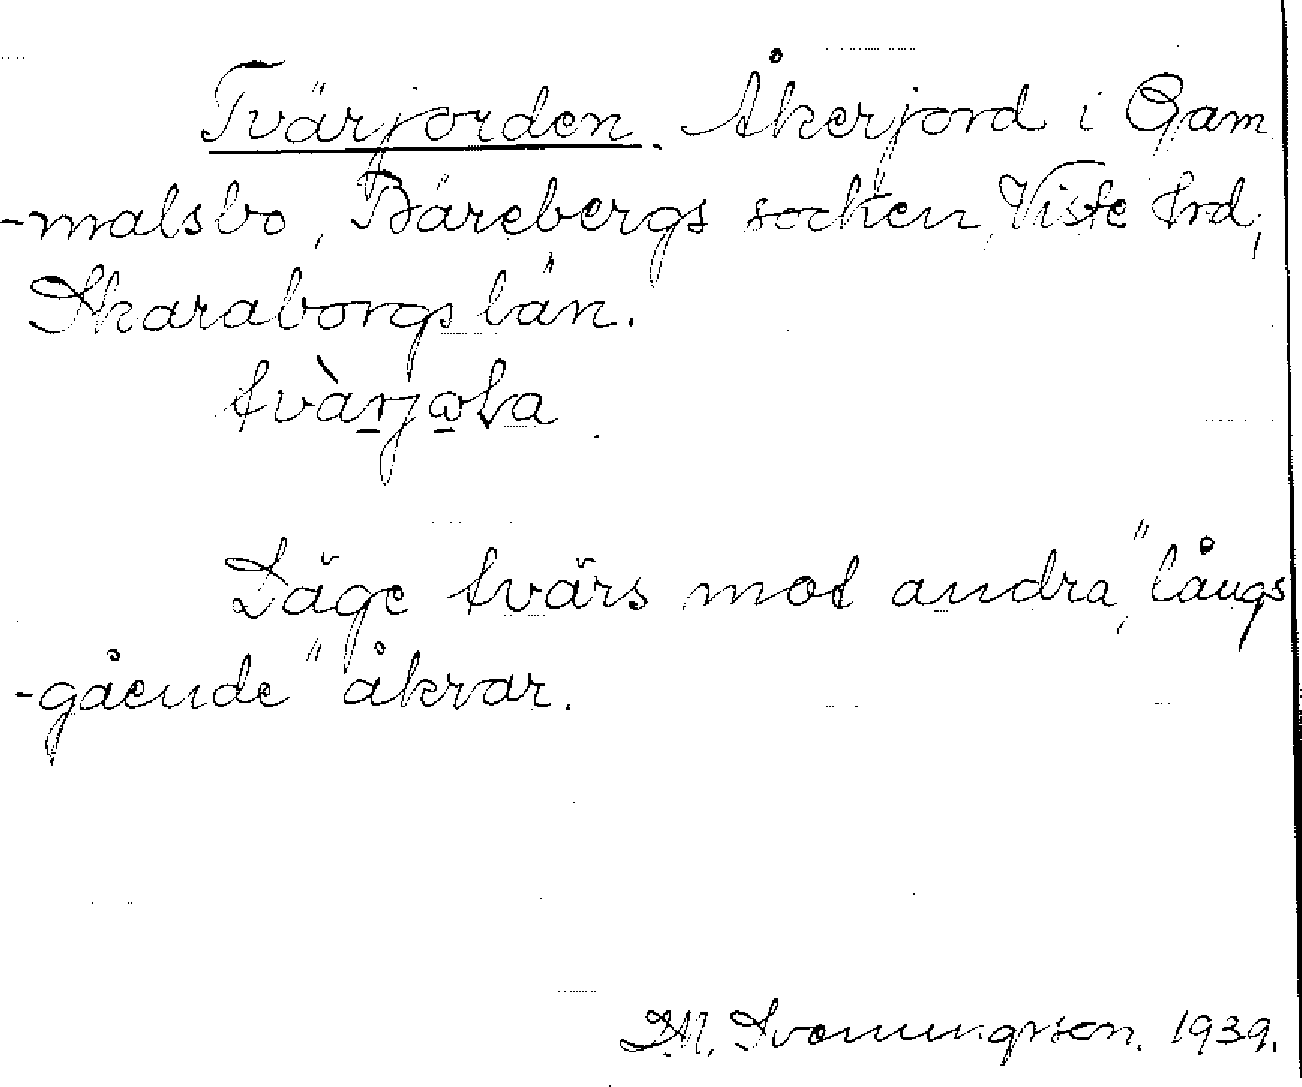 Tvärjorden. Åkerjord i Gam
-malsbo, Bärebergs socken, Viste hrd,
Skaraborgs län.
tvàrjoɷLa
Läge tvärs mot andra, "långs
-gående" åkrar.
1939.